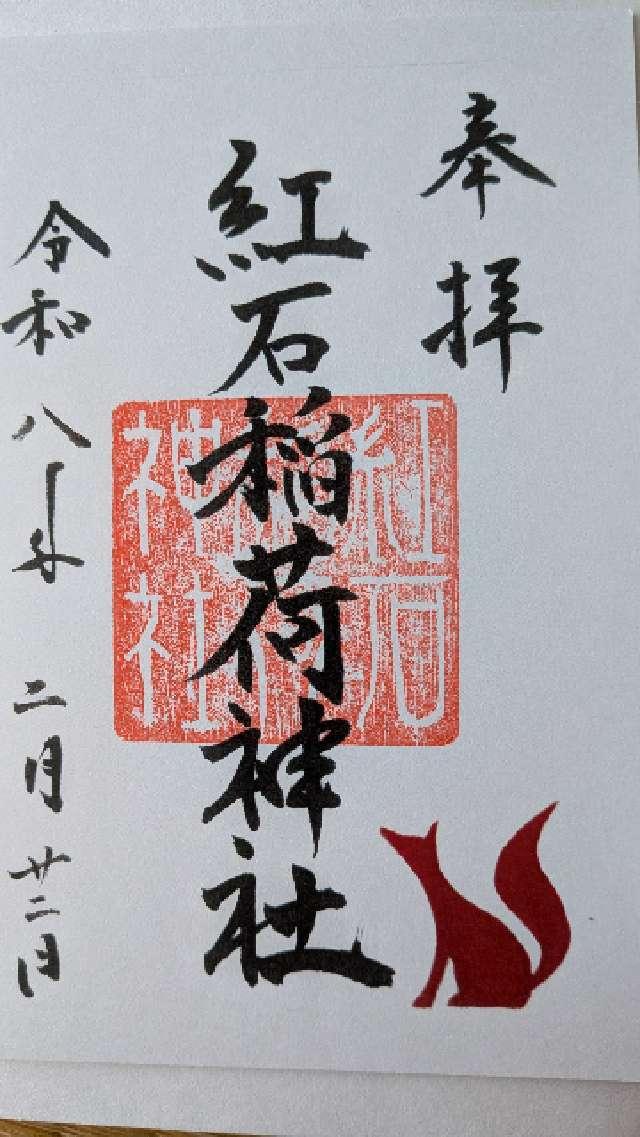 奉拝
紅石稲荷神社
紅石稲荷神社
令和八年二月廿二日